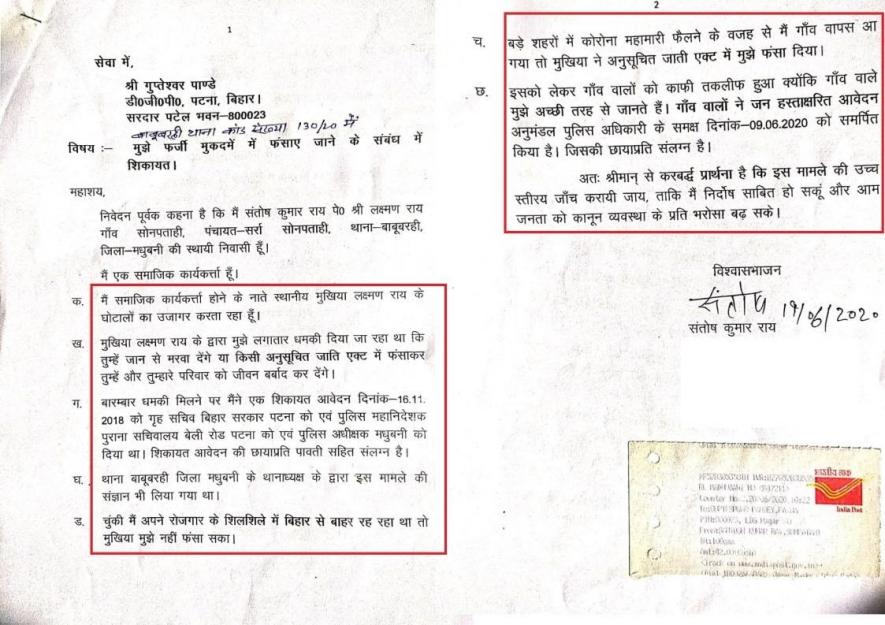 1
सेवा में,
श्री गुप्तेश्वर पाण्डे
डी0जी0पी0, पटना, बिहार।
सरदार पटेल भवन–800023
बाबूबरही थाना कांड संख्या 130/20 में
विषय :– मुझे फर्जी मुकदमें में फंसाए जाने के संबंध में
शिकायत।
महाशय,
निवेदन पूर्वक कहना है कि मैं संतोष कुमार राय पे0 श्री लक्ष्मण राय
गाँव सोनपताही, पंचायत–सर्रा सोनपताही, थाना–बाबूबरही,
जिला–मधुबनी की स्थायी निवासी हूँ।
मैं एक समाजिक कार्यकर्त्ता हूँ।
क. मैं समाजिक कार्यकर्त्ता होने के नाते स्थानीय मुखिया लक्ष्मण राय के
घोटालों का उजागर करता रहा हूँ।
ख. मुखिया लक्ष्मण राय के द्वारा मुझे लगातार धमकी दिया जा रहा था कि
तुम्हें जान से मरवा देंगे या किसी अनुसूचित जाति एक्ट में फंसाकर
तुम्हें और तुम्हारे परिवार को जीवन बर्बाद कर देंगे।
ग. बारम्बार धमकी मिलने पर मैंने एक शिकायत आवेदन दिनांक–16.11.
2018 को गृह सचिव बिहार सरकार पटना को एवं पुलिस महानिदेशक
पुराना सचिवालय बेली रोड पटना को एवं पुलिस अधीक्षक मधुबनी को
दिया था। शिकायत आवेदन की छायाप्रति पावती सहित संलग्न है।
घ. थाना बाबूबरही जिला मधुबनी के थानाध्यक्ष के द्वारा इस मामले की
संज्ञान भी लिया गया था।
ड. चुंकी मैं अपने रोजगार के शिलशिले में बिहार से बाहर रह रहा था तो
मुखिया मुझे नहीं फंसा सका।
2
च. बड़े शहरों में कोरोना महामारी फैलने के वजह से मैं गाँव वापस आ
गया तो मुखिया ने अनुसूचित जाती एक्ट में मुझे फंसा दिया।
छ. इसको लेकर गाँव वालों को काफी तकलीफ हुआ क्योंकि गाँव वाले
मुझे अच्छी तरह से जानते हैं। गाँव वालों ने जन हस्ताक्षरित आवेदन
अनुमंडल पुलिस अधिकारी के समक्ष दिनांक–09.06.2020 को समर्पित
किया है। जिसकी छायाप्रति संलग्न है।
अतः श्रीमान् से करबर्द्ध प्रार्थना है कि इस मामले की उच्च
स्तीरय जाँच करायी जाय, ताकि मैं निर्दोष साबित हो सकूं और आम
जनता को कानून व्यवस्था के प्रति भरोसा बढ़ सके।
विश्वासभाजन
संतोष 19/06/2020
संतोष कुमार राय
भारतीय डाक
India Post